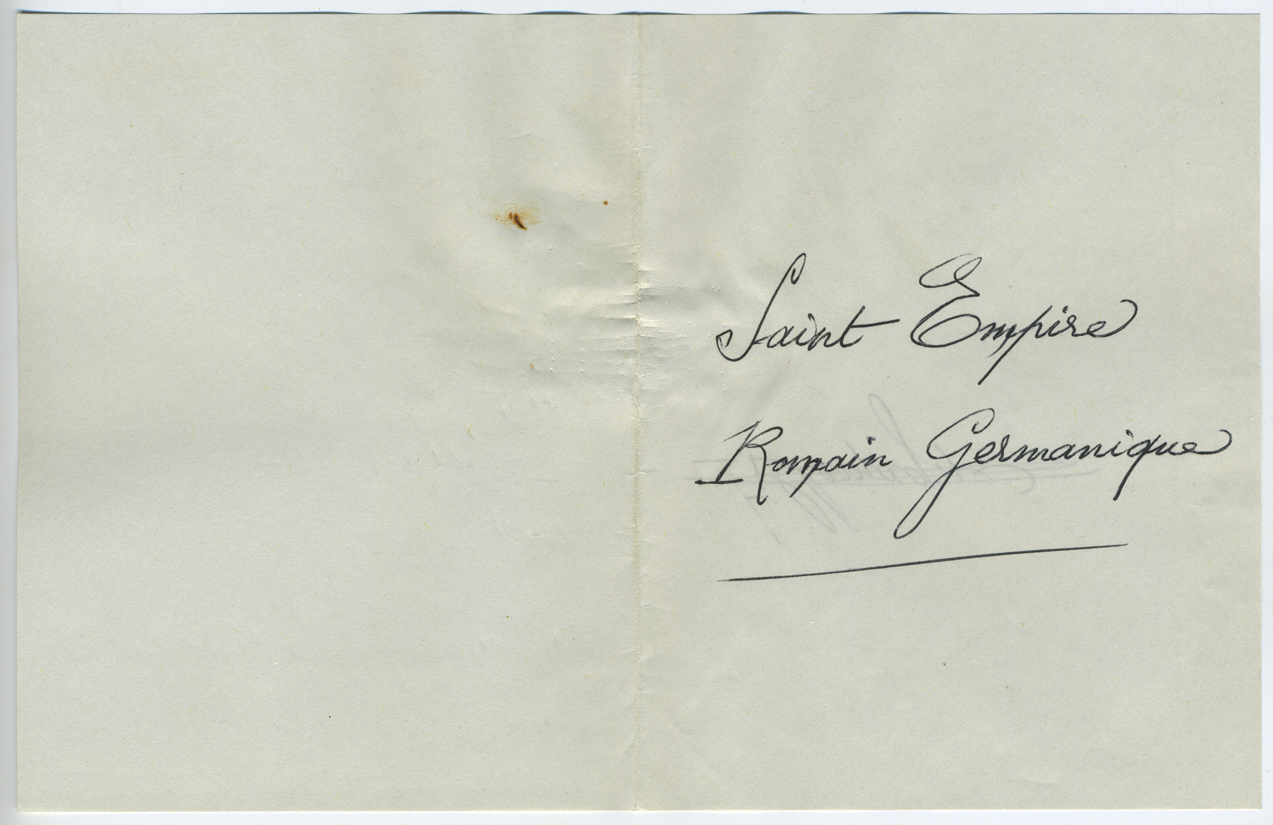 Saint Empire
Romain Germanique